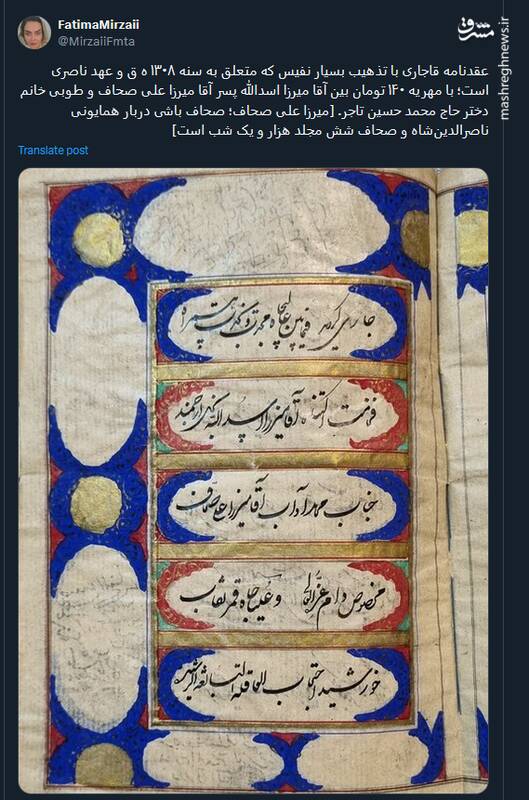 FatimaMirzaii
@MirzaiiFmta
مشرق
mashreghnews.ir
عقدنامه قاجاری با تذهیب بسیار نفیس که متعلق به سنه ۱۳۰۸ ه ق و عهد ناصری
است؛ با مهریه ۱۴۰ تومان بین آقا میرزا اسدالله پسر آقا میرزا علی صحاف و طوبی خانم
دختر حاج محمد حسین تاجر. [میرزا علی صحاف؛ صحاف باشی دربار همایونی
ناصرالدین‌شاه و صحاف شش مجلد هزار و یک شب است]
Translate post
جاری گردید فیمابین عالیجاه
آقا میرزا اسدالله
جناب آداب آقا میرزا علی صحاف
مخصوص دام عزّه العالی و علیا جاه قمر نقاب
خورشید احتجاب العاقلة البالغة الرشیده